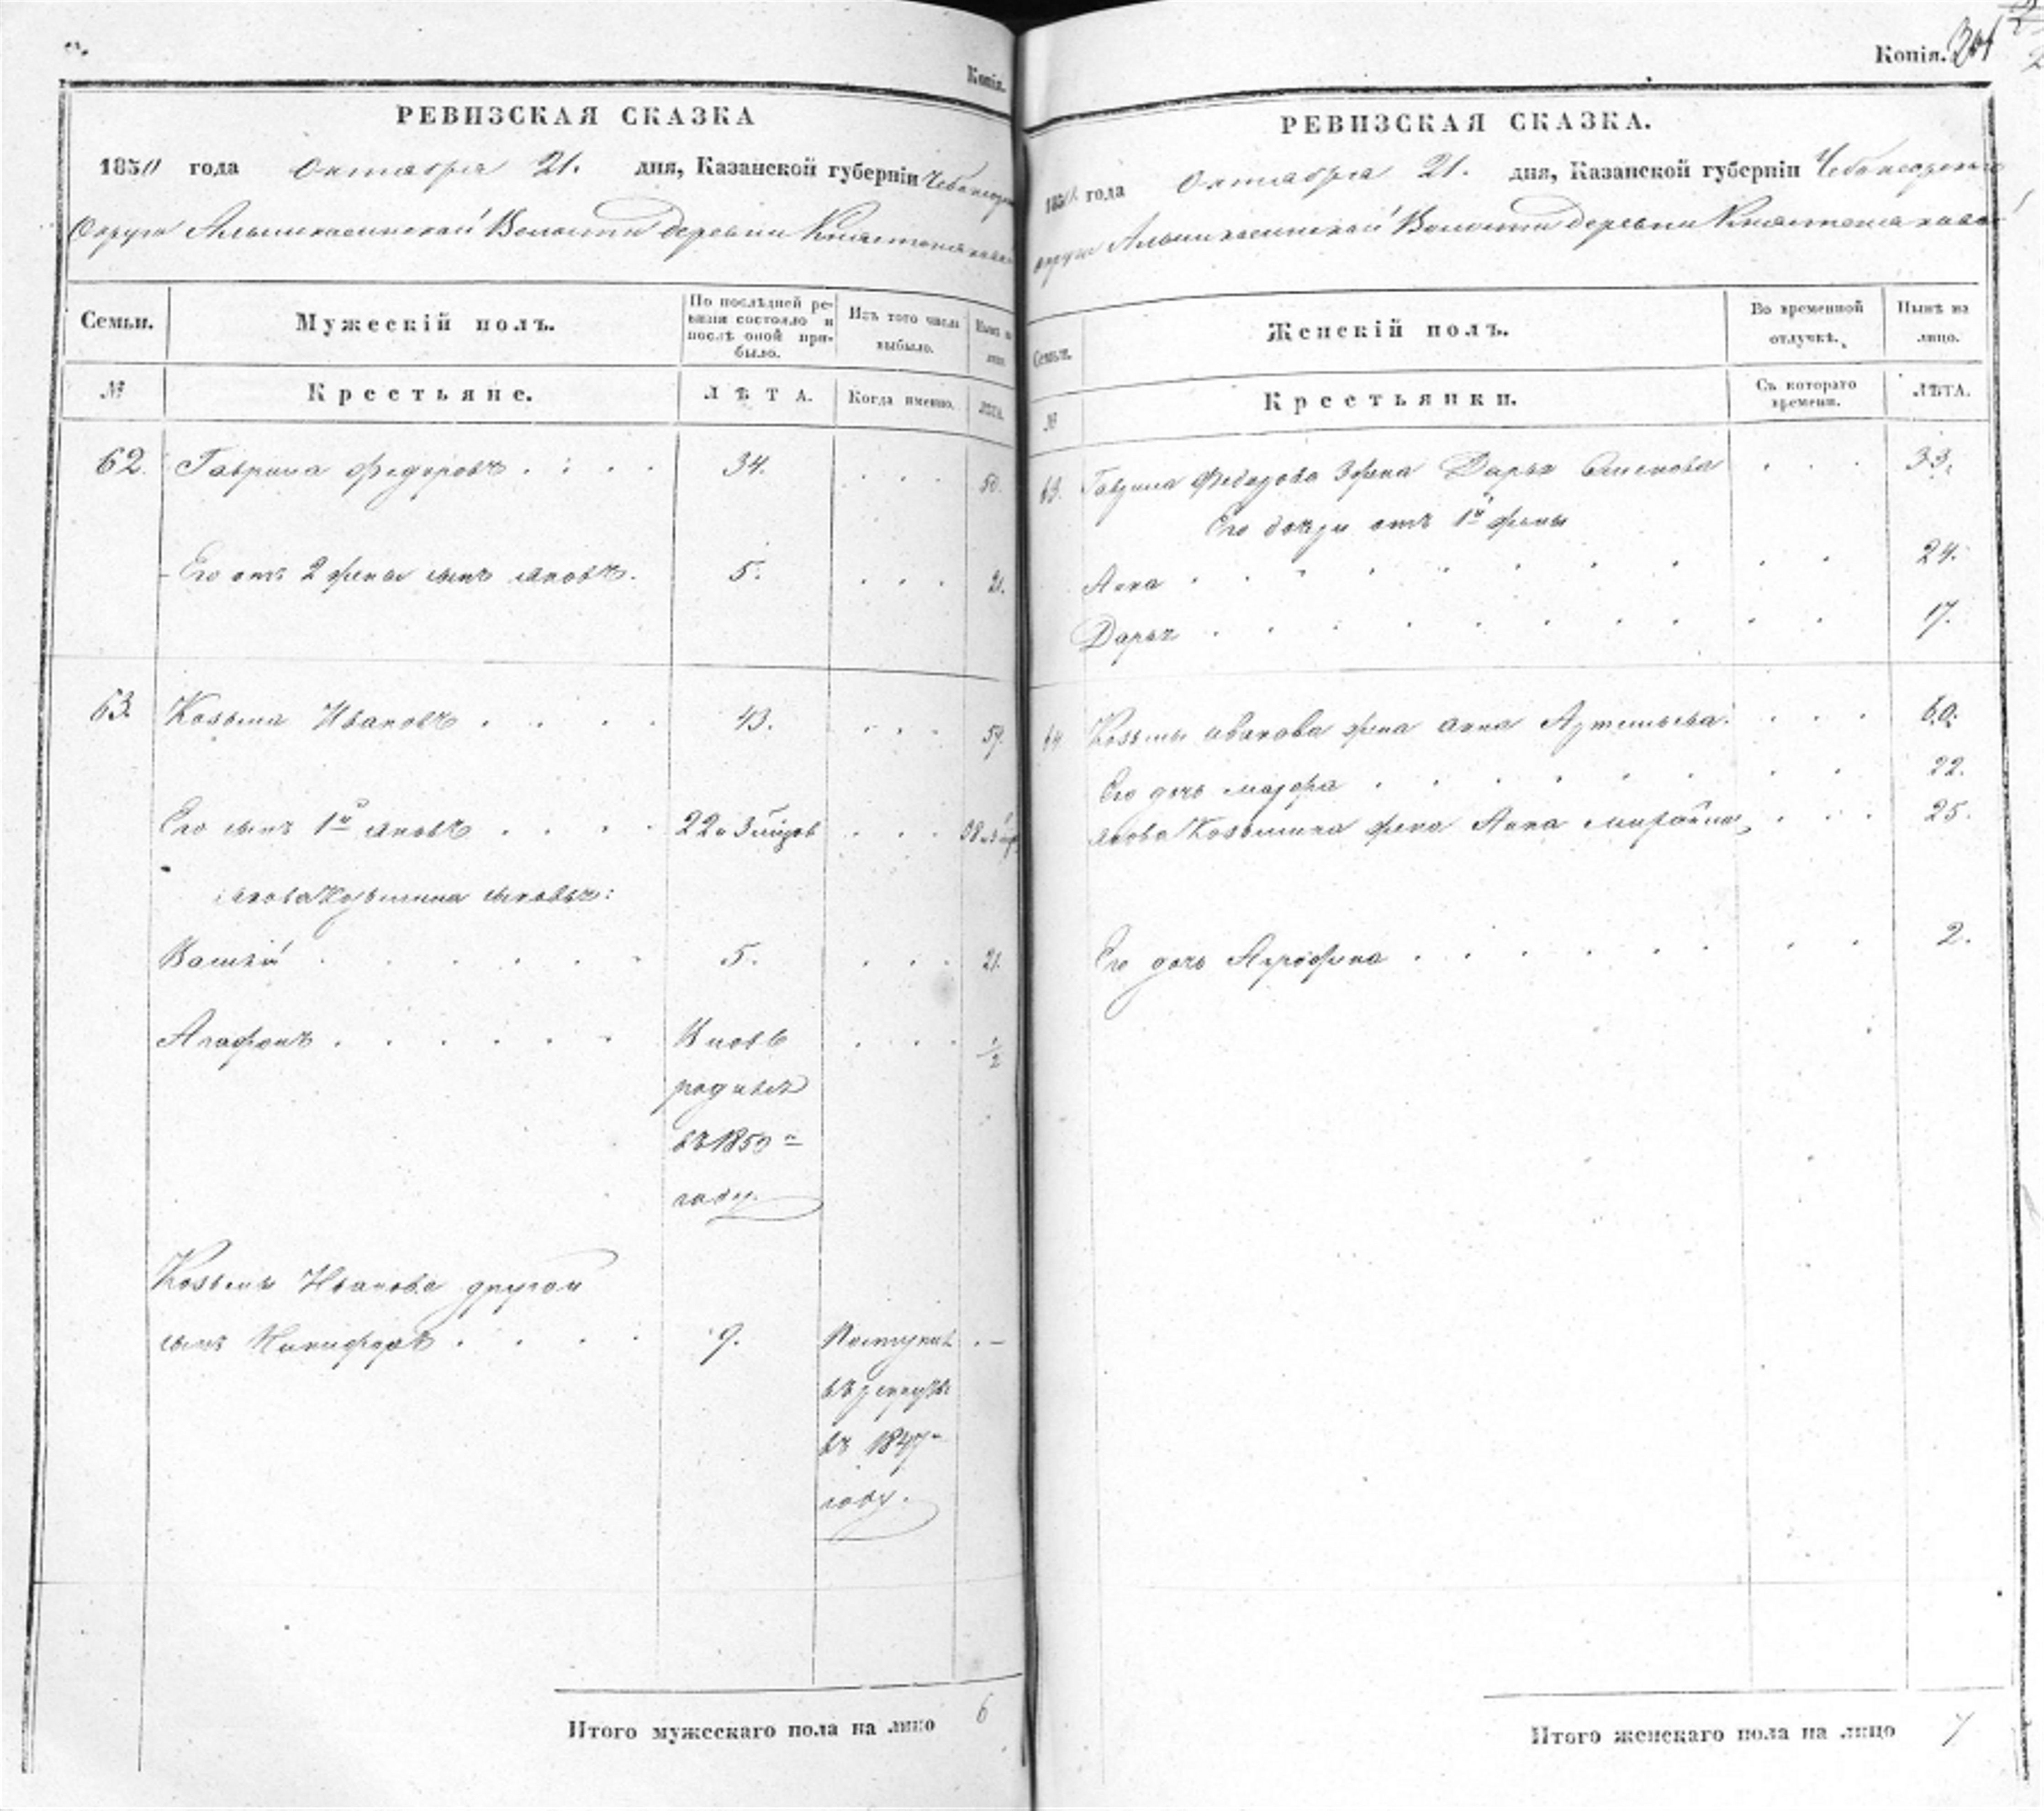 Копія.
РЕВИЗСКАЯ СКАЗКА
1850 года Октября 21. дня, Казанской губерніи Чебоксарскаго
округа Альшикасинской Волости деревни
Семьи.
Мужескій полъ.
По послѣдней ревизіи состояло и послѣ оной прибыло.
Изъ того числа выбыло.
Нынѣ на лицо.
№
Крестьяне.
ЛѢТА.
Когда именно.
ЛѢТА.
62. Гаврила Федоровъ . . . . 34. . . . 50.
Его отъ 2 жены сынъ Яковъ. 5. . . . 21.
63. Козьма Ивановъ . . . . 43. . . . 59.
Его сынъ 1й Яковъ . . . . 22 . . . 38
Якова Козьмина сыновья:
Василій . . . . . . 5. . . . 21.
Агафонъ . . . . . . Вновь . . . 1/2
родился
въ 1850
году.
Козьмы Иванова другой
сынъ Никифоръ . . . . 9. Поступилъ . —
въ рекруты
въ 1847
году.
Итого мужескаго пола на лицо 6
Копія.
РЕВИЗСКАЯ СКАЗКА.
1850 года Октября 21. дня, Казанской губерніи Чебоксарскаго
округа Альшикасинской Волости деревни
Семьи.
Женскій полъ.
Во временной отлучкѣ.
Нынѣ на лицо.
№
Крестьянки.
Съ котораго времени.
ЛѢТА.
Гаврила Федорова 3 жена Дарья . . . 33.
Его дочери отъ 1й жены
Анна . . . . . . . . . . 24.
Дарья . . . . . . . . . . 17.
Козьмы Иванова жена Анна Артемьева. . . . 60.
Его дочь Марфа . . . . . . . . 22.
Якова Козьмина жена Анна . . . 25.
Его дочь . . . . . . . . 2.
Итого женскаго пола на лицо 7